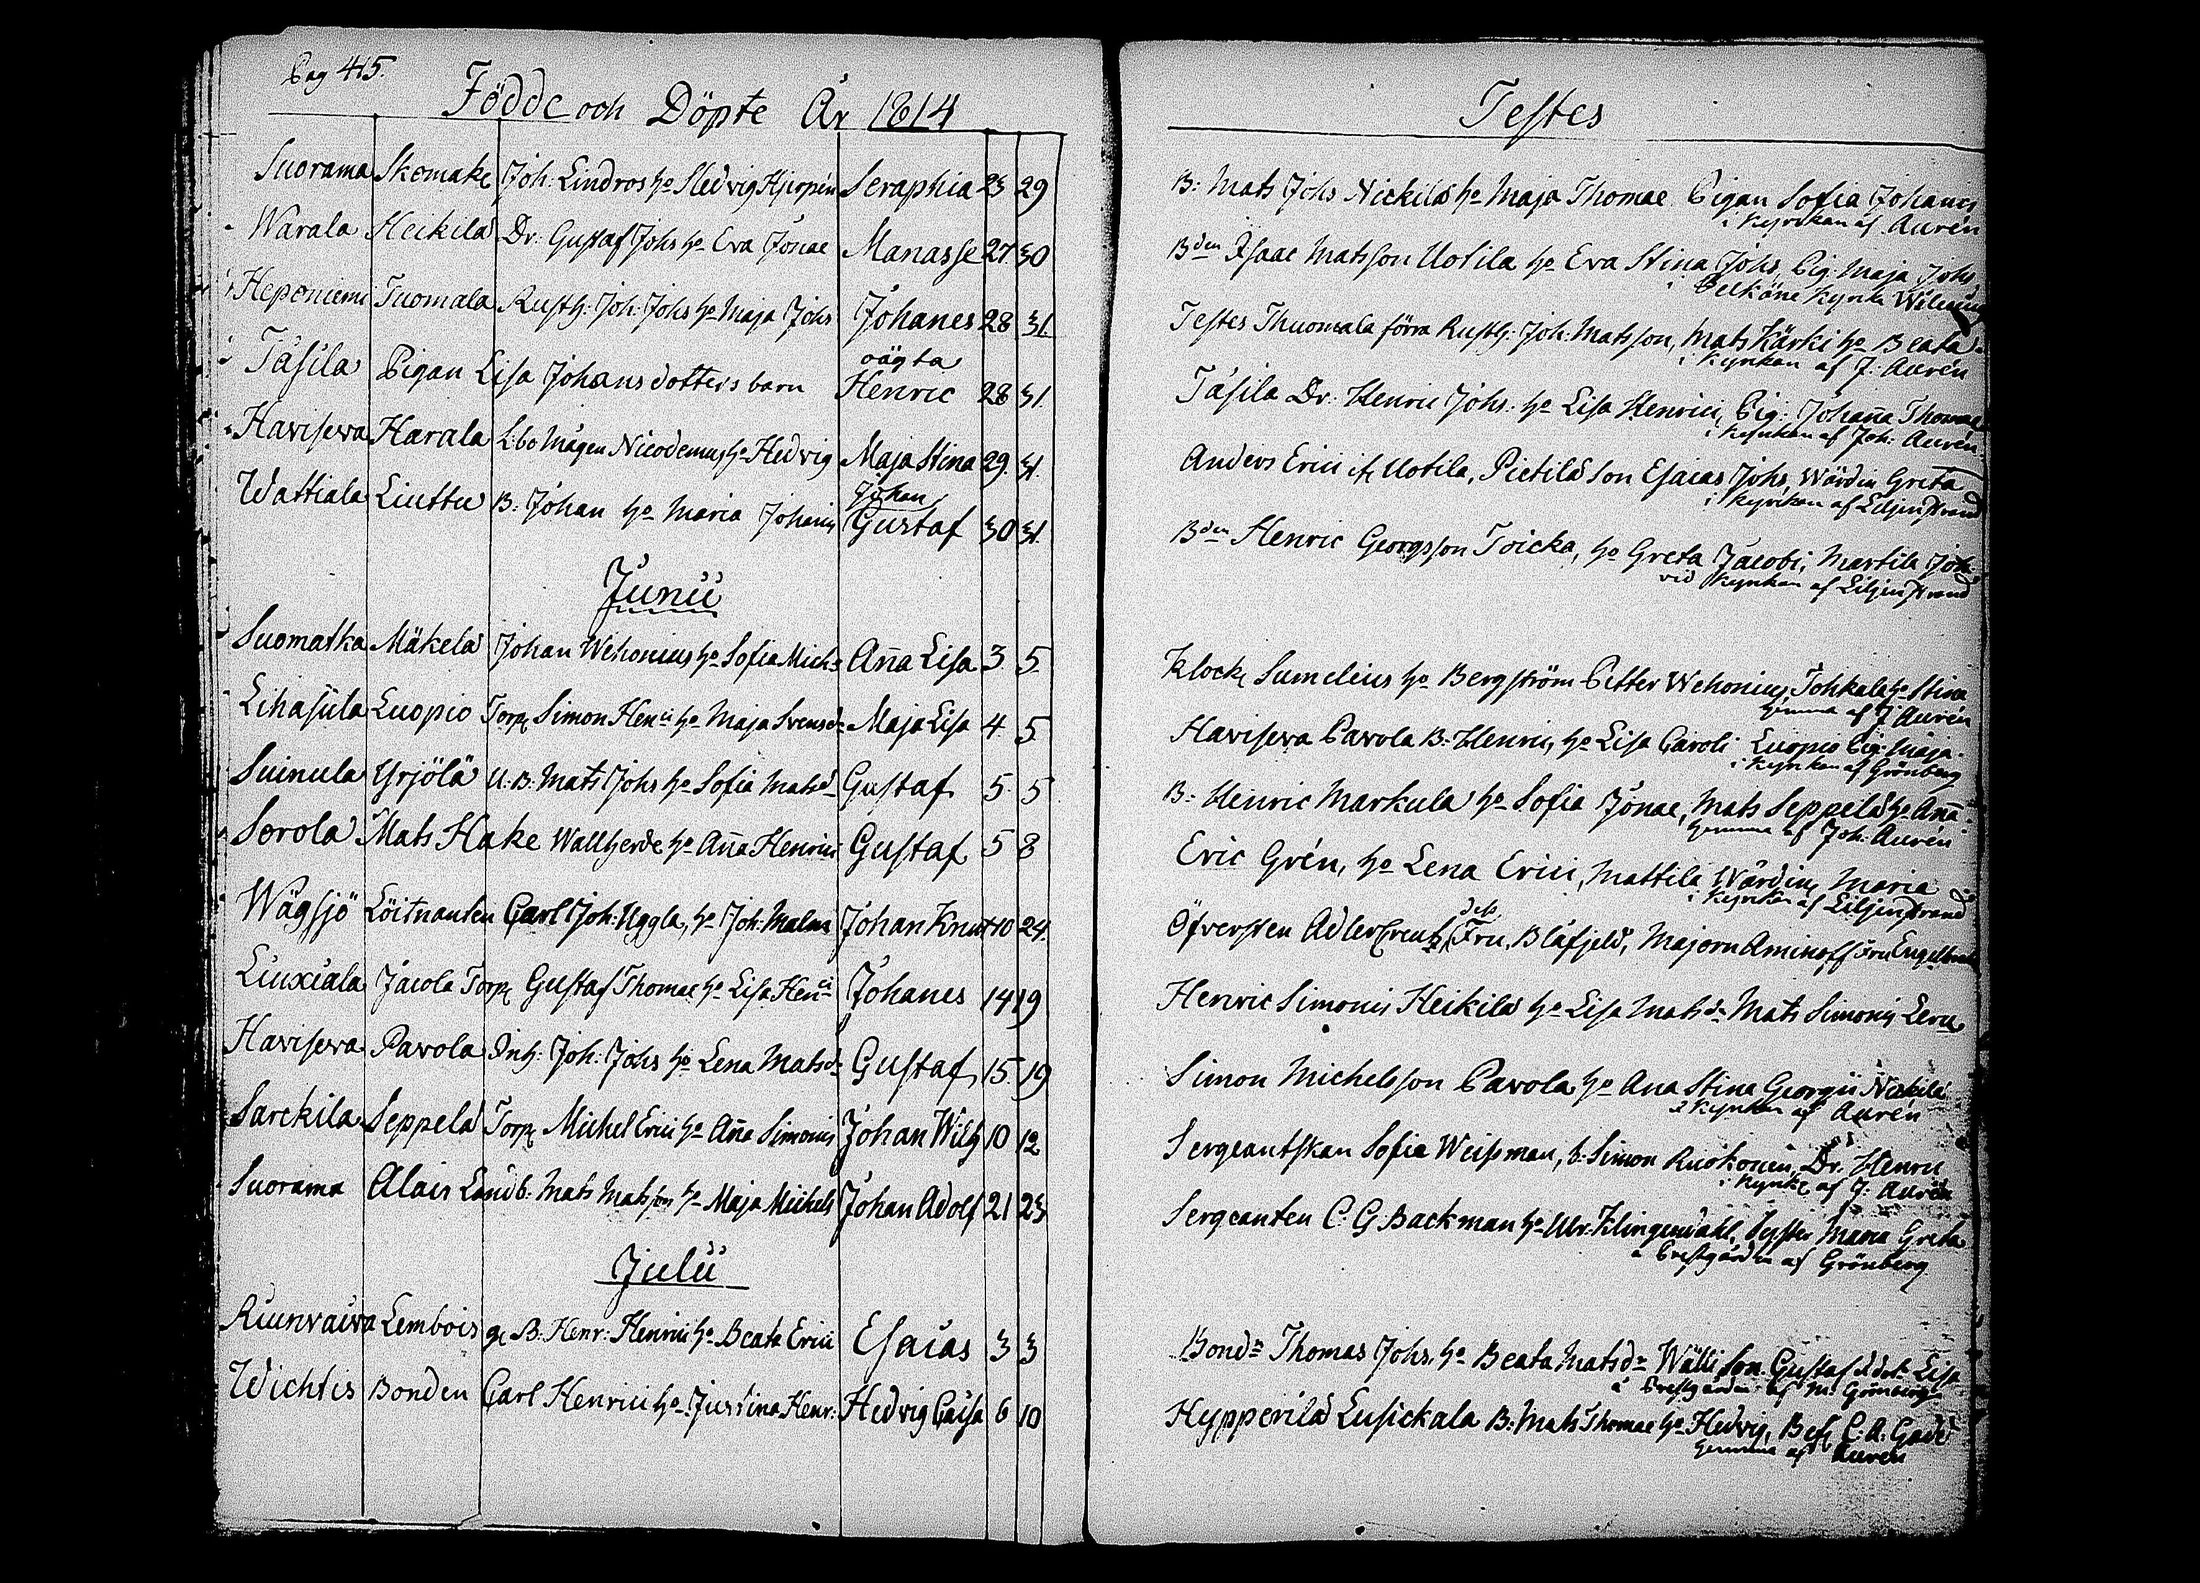 Pag 415.
Födde och Döpte År 1814
Suorama Skomak Joh: Lindros ho Hedvig Hjerpén Seraphia 23 29
Warala Heikilä Dr: Gustaf Johs ho Eva Jonae Manasse 27 30
Heponiemi Tuomala Rusth: Joh: Johs ho Maja Johs Johanes 28 31
oägta
Tåsila Pigan Lisa Johansdotters barn Henric 28 31.
Havisewa Harala L:bo Mågen Nicodemus ho Hedvig Maja Stina 29. 31.
Johan
Wattiala Liuttu B: Johan ho Maria Johanis Gustaf 30 31.
Junii
Suomatka Mäkelä Johan Wehonius ho Sofia Mich: Aña Lisa 3 5.
Lihasula Luopio Torp Simon Henci ho Maja Svensdr Maja Lisa 4 5
Suinula Yrjölä U: B: Mats Johs ho Sofia Matsdr Gustaf 5. 5
Sorola Mats Hake Wallherde ho Aña Henrici Gustaf 5 8
Wägsjö Löitnanten Carl Joh: Uggla, ho Joh: Malm Johan Knut 10 24.
Liuxiala Jacola Torp Gustaf Thomae ho Lisa Henci Johanes 14 19
Havisewa Pavola Inh: Joh: Johs ho Lena Matsdr Gustaf, 15. 19
Sarckila Seppelä Torp Michel Erici ho Aña Simonis Johan Wilh 10 12
Suorama Alais Landb: Mats Matsson ho Maja Michels Johan Adolf 21 23
Julii
Ruunraiwa Lembois B: Henr: Henrici ho Beata Erici Esaias 3 3
Wichtis Bonden Carl Henrici ho Justina Henr: Hedvig Caisa 6 10
Testes
B: Mats Johs Nickilä ho Maja Thomae Pigan Sofia Johanis
i Kyrckan af Aurén
Bden Isaac Matsson Uotila ho Eva Stina Johs, Pig: Maja Johs
i Pelkäne Kyrck
Testes Thuomala förra Rusth: Joh: Matsson, Mats Kärki ho Beata
i Kyrckan af J: Aurén
Tåsila Dr: Henric Johs: ho Lisa Henrici, Pig: Johaña Thomae
i Kyrckan af Joh: Aurén
Anders Erici Uotila, Pietilä Son Esaias Johs, Wärdin Greta
i Kyrckan af Liljenstrand
Bden Henric Georgsson Toicka, ho Greta Jacobi, Martila Joh:
vid Kyrckan af Liljenstrand
Klock Sumelius ho Bergström Petter Wehonius, Tohkala ho Stina
hemma af J Aurén
Havisewa Pavola B: Henric, ho Lisa Caroli Luopio Pig: Maja
i Kyrckan af Grönberg
B: Henric Markula ho Sofia Jonae, Mats Seppelä ho Aña
hemma af Joh: Aurén
Eric Grén, ho Lena Erici, Mattila Wärdin Maria
i Kyrckan af Liljenstrand
Öfversten AdlerCreutz, dess Fru, Blåfjeld, Majorn Aminoff Fru
Henric Simonis Heikilä ho Lisa Matsdr Mats Simonis
Simon Michelsson Pavola ho Ana Stina Georgii Nickilä
i Kyrckan af Aurén
Sergeantskan Sofia Weisman, b: Simon Ruokonen, Dr. Henric
i Kyrck af J: Aurén
Sergeanten C: G: Backman ho Ulr: Klingendahl, Syster Maria Greta
a Prestgården af Grönberg
Bondn Thomas Johs, ho Beata Matsdr Wälli Son Gustaf dot: Lisa
a Prestgården af
Hypperilä Lusickala B: Mats Thomae ho Hedvig, C: A: Gadd
hemma af Aurén